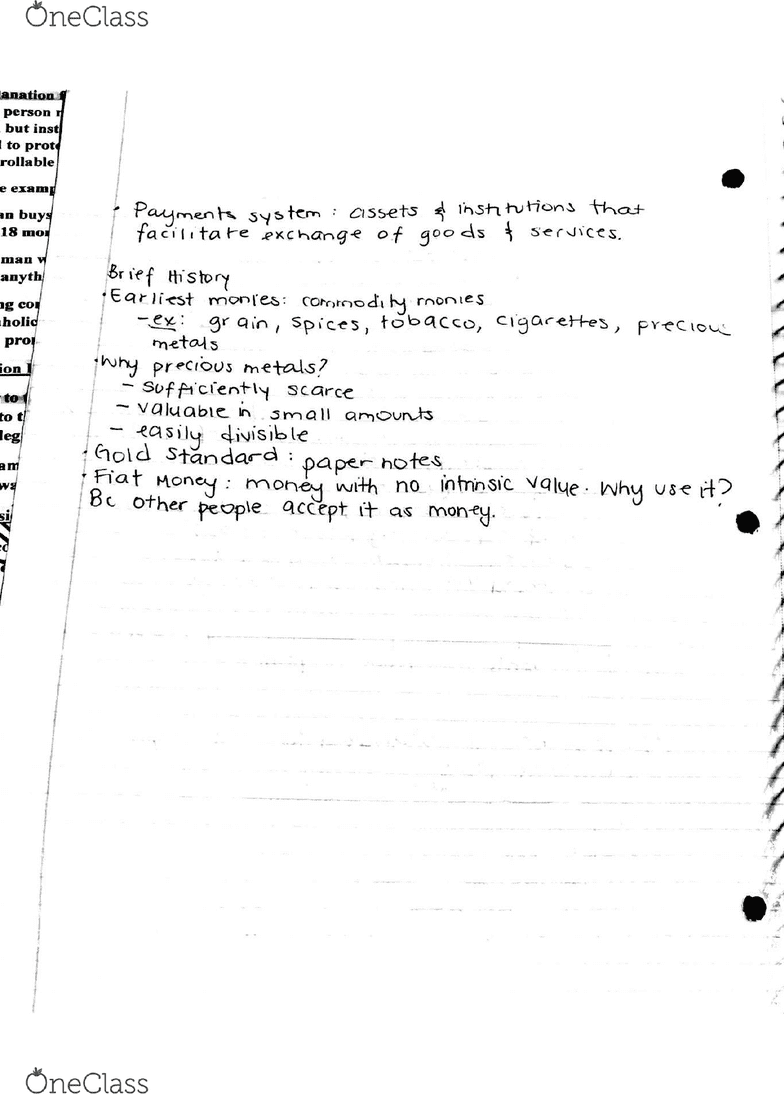 OneClass
anation
person
but inst
to prote
rollable
e examp
an buys
18 mon
man w
anyth
ng con
holic
pro
ion
to
to t
leg
am
ws
si
• Payments system : assets & institutions that
facilitate exchange of goods & services.
Brief History
• Earliest monies: commodity monies
- ex: grain, spices, tobacco, cigarettes, precious
metals
• Why precious metals?
- sufficiently scarce
- valuable in small amounts
- easily divisible
• Gold Standard : paper notes
• Fiat Money : money with no intrinsic value. Why use it?
Bc other people accept it as money.
OneClass